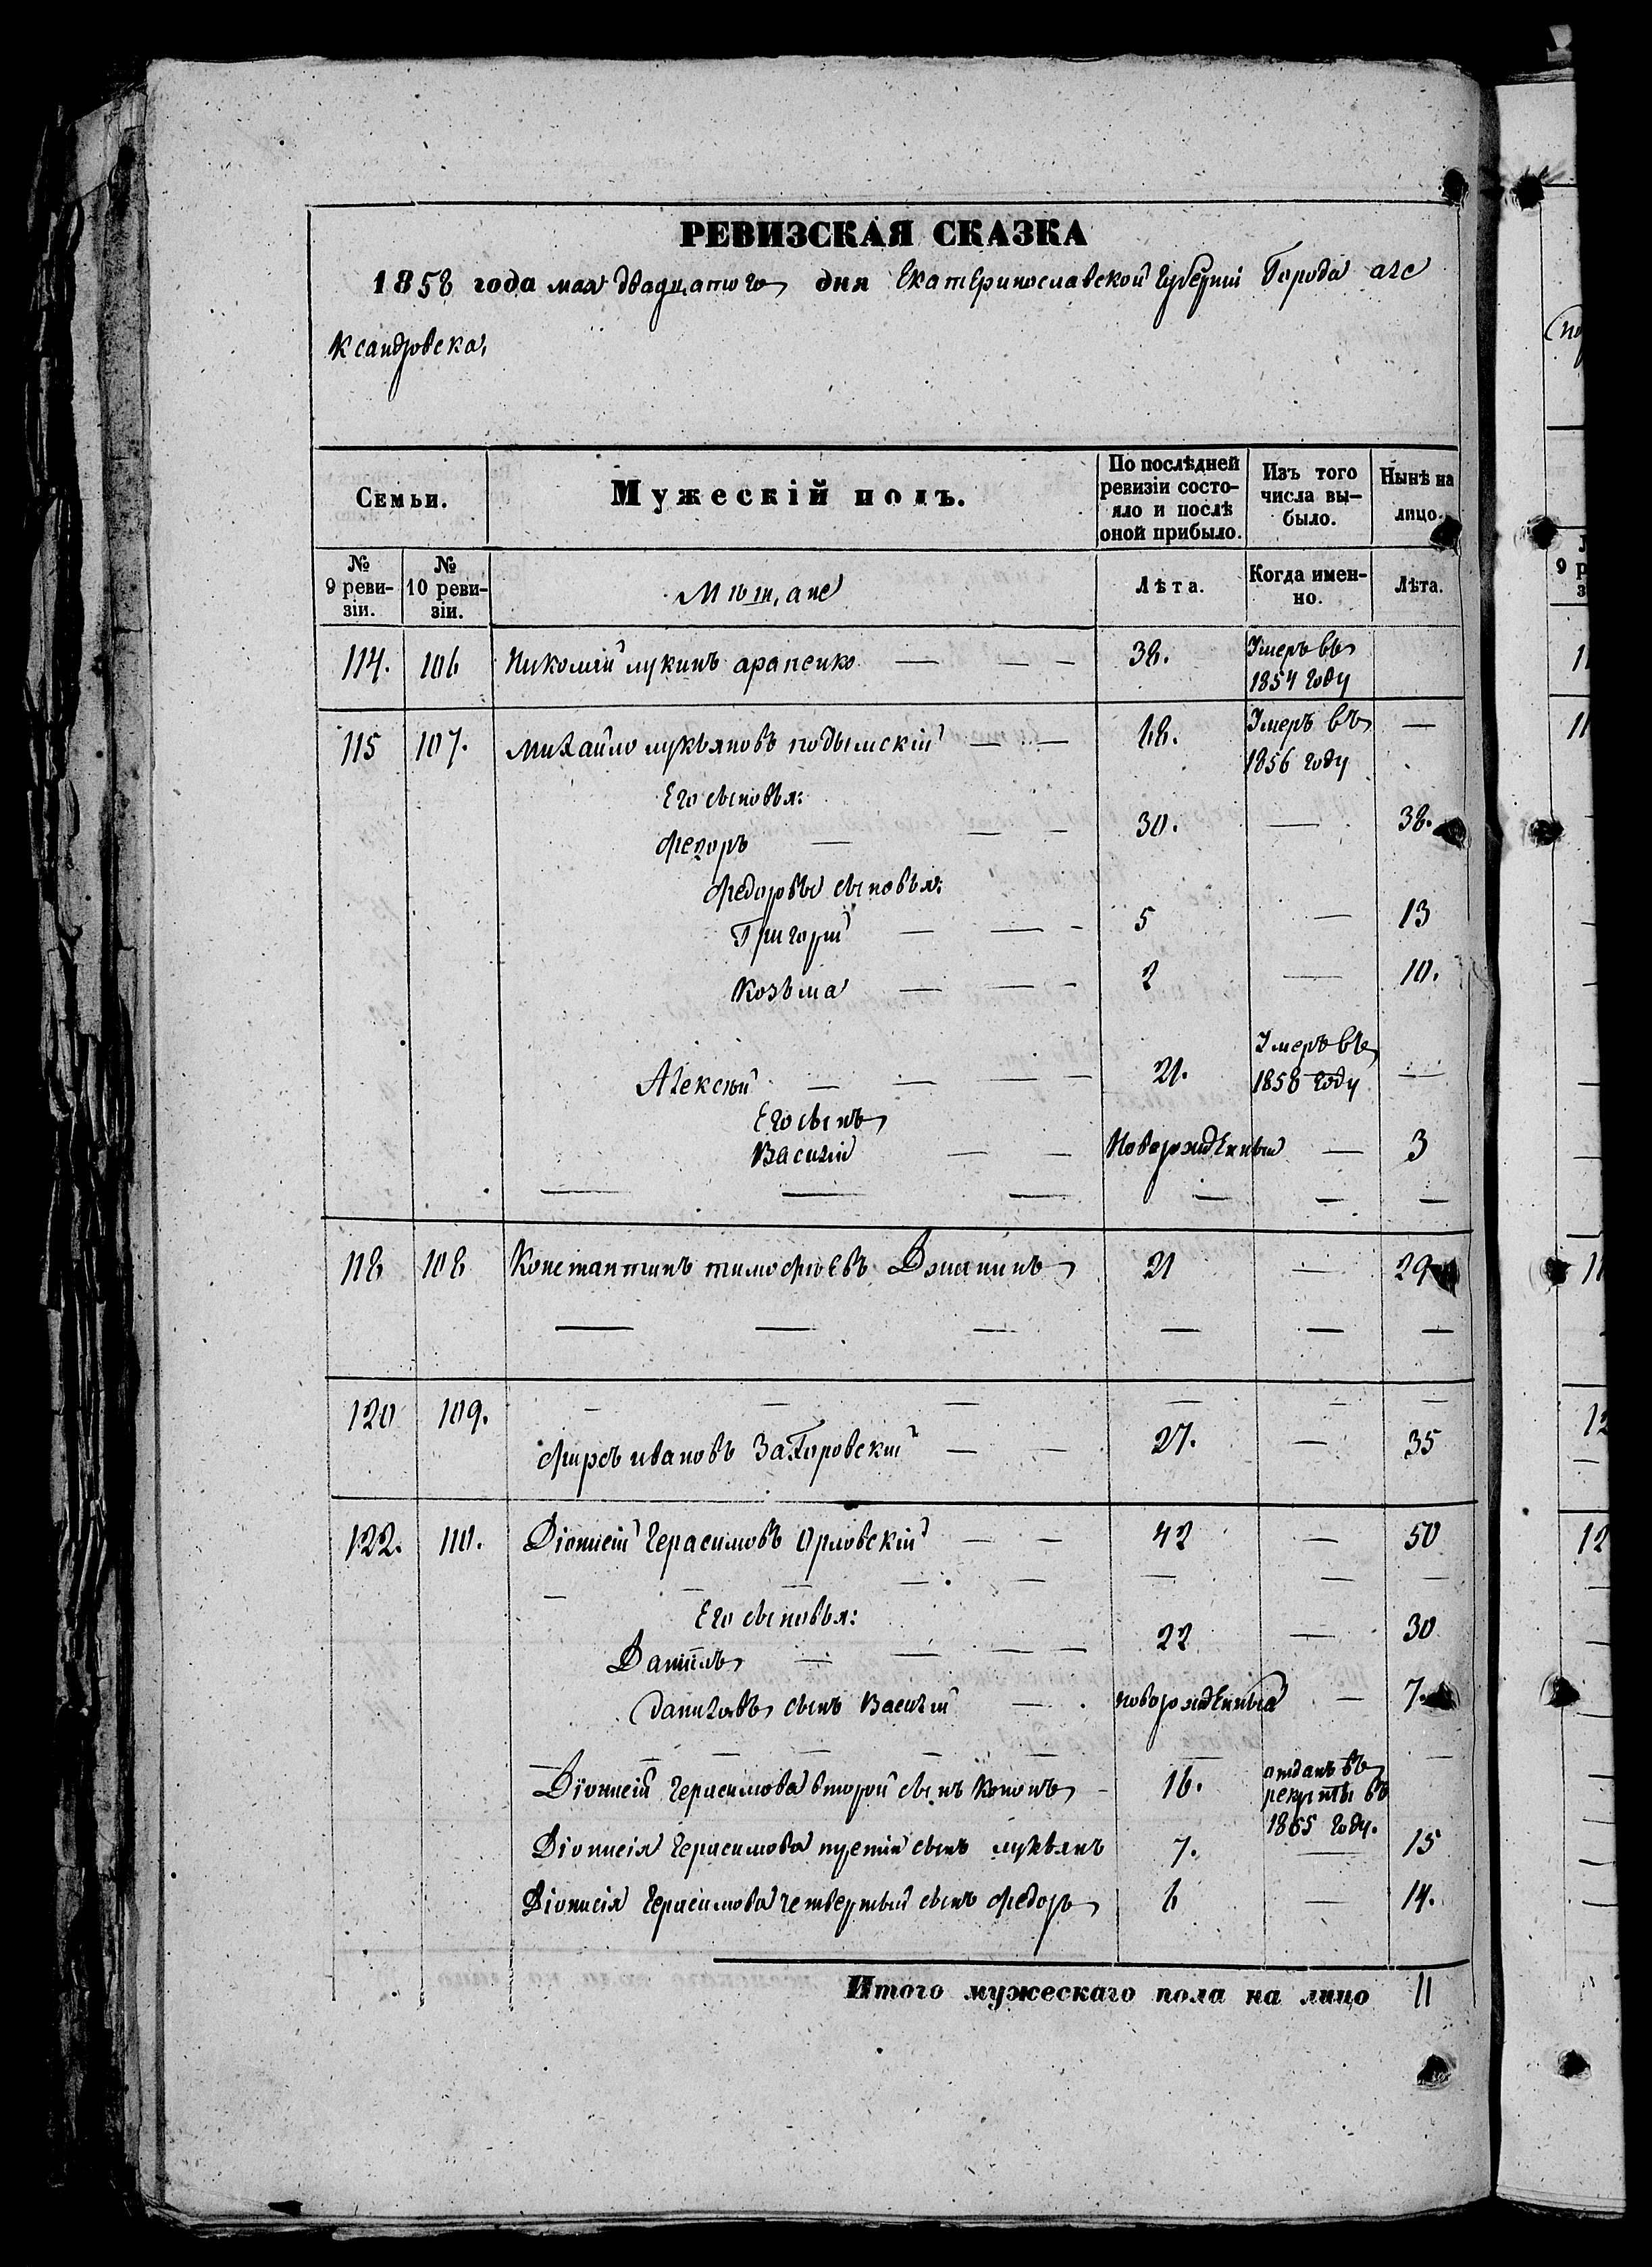 РЕВИЗСКАЯ СКАЗКА
1858 года мая двадцатого дня Екатеринославской Губерніи Города Але
ксандровска,
Семьи.
Мужескій полъ.
По послѣдней ревизіи состо-
яло и послѣ
оной прибыло.
Изъ того
числа вы-
было.
Нынѣ на
лицо.
№
9 реви-
зіи.
№
10 реви-
зіи.
Мѣщане
Лѣта.
Когда имен-
но.
Лѣта.
114. 106 Николай Лукинъ — — — 38. Умеръ въ
1854 году
115 107. Михайло Лукьяновъ — — 68. Умеръ въ —
1856 году
Его сыновья:
Федоръ — — — 30. — 38.
Федоровы сыновья:
Григорій — — - 5 — 13
Козьма — — — 2 — 10.
Алексѣй — — — — 21. Умеръ въ
1858 году —
Его сынъ
Василій — — Новорожденный — 3
— — — — — —
118 108 Константинъ Тимофѣевъ 21 — 29
— — — — — —
120 109. — — — — — —
Фирсъ Ивановъ — — 27. — 35
122. 110. Діонисій Герасимовъ Орловскій — — 42 — 50
— — — — — — — —
Его сыновья:
Даніилъ — — — — 22 — 30
Даниловъ сынъ Василій — новорожденный — 7.
— — — — — — — —
Діонисія Герасимова второй сынъ Кононъ - 16. отданъ въ
рекруты въ
1855 году.
Діонисія Герасимова третій сынъ Лукьянъ 7. — 15
Діонисія Герасимова четвертый сынъ Федоръ 6 — 14.
Итого мужескаго пола на лицо 11